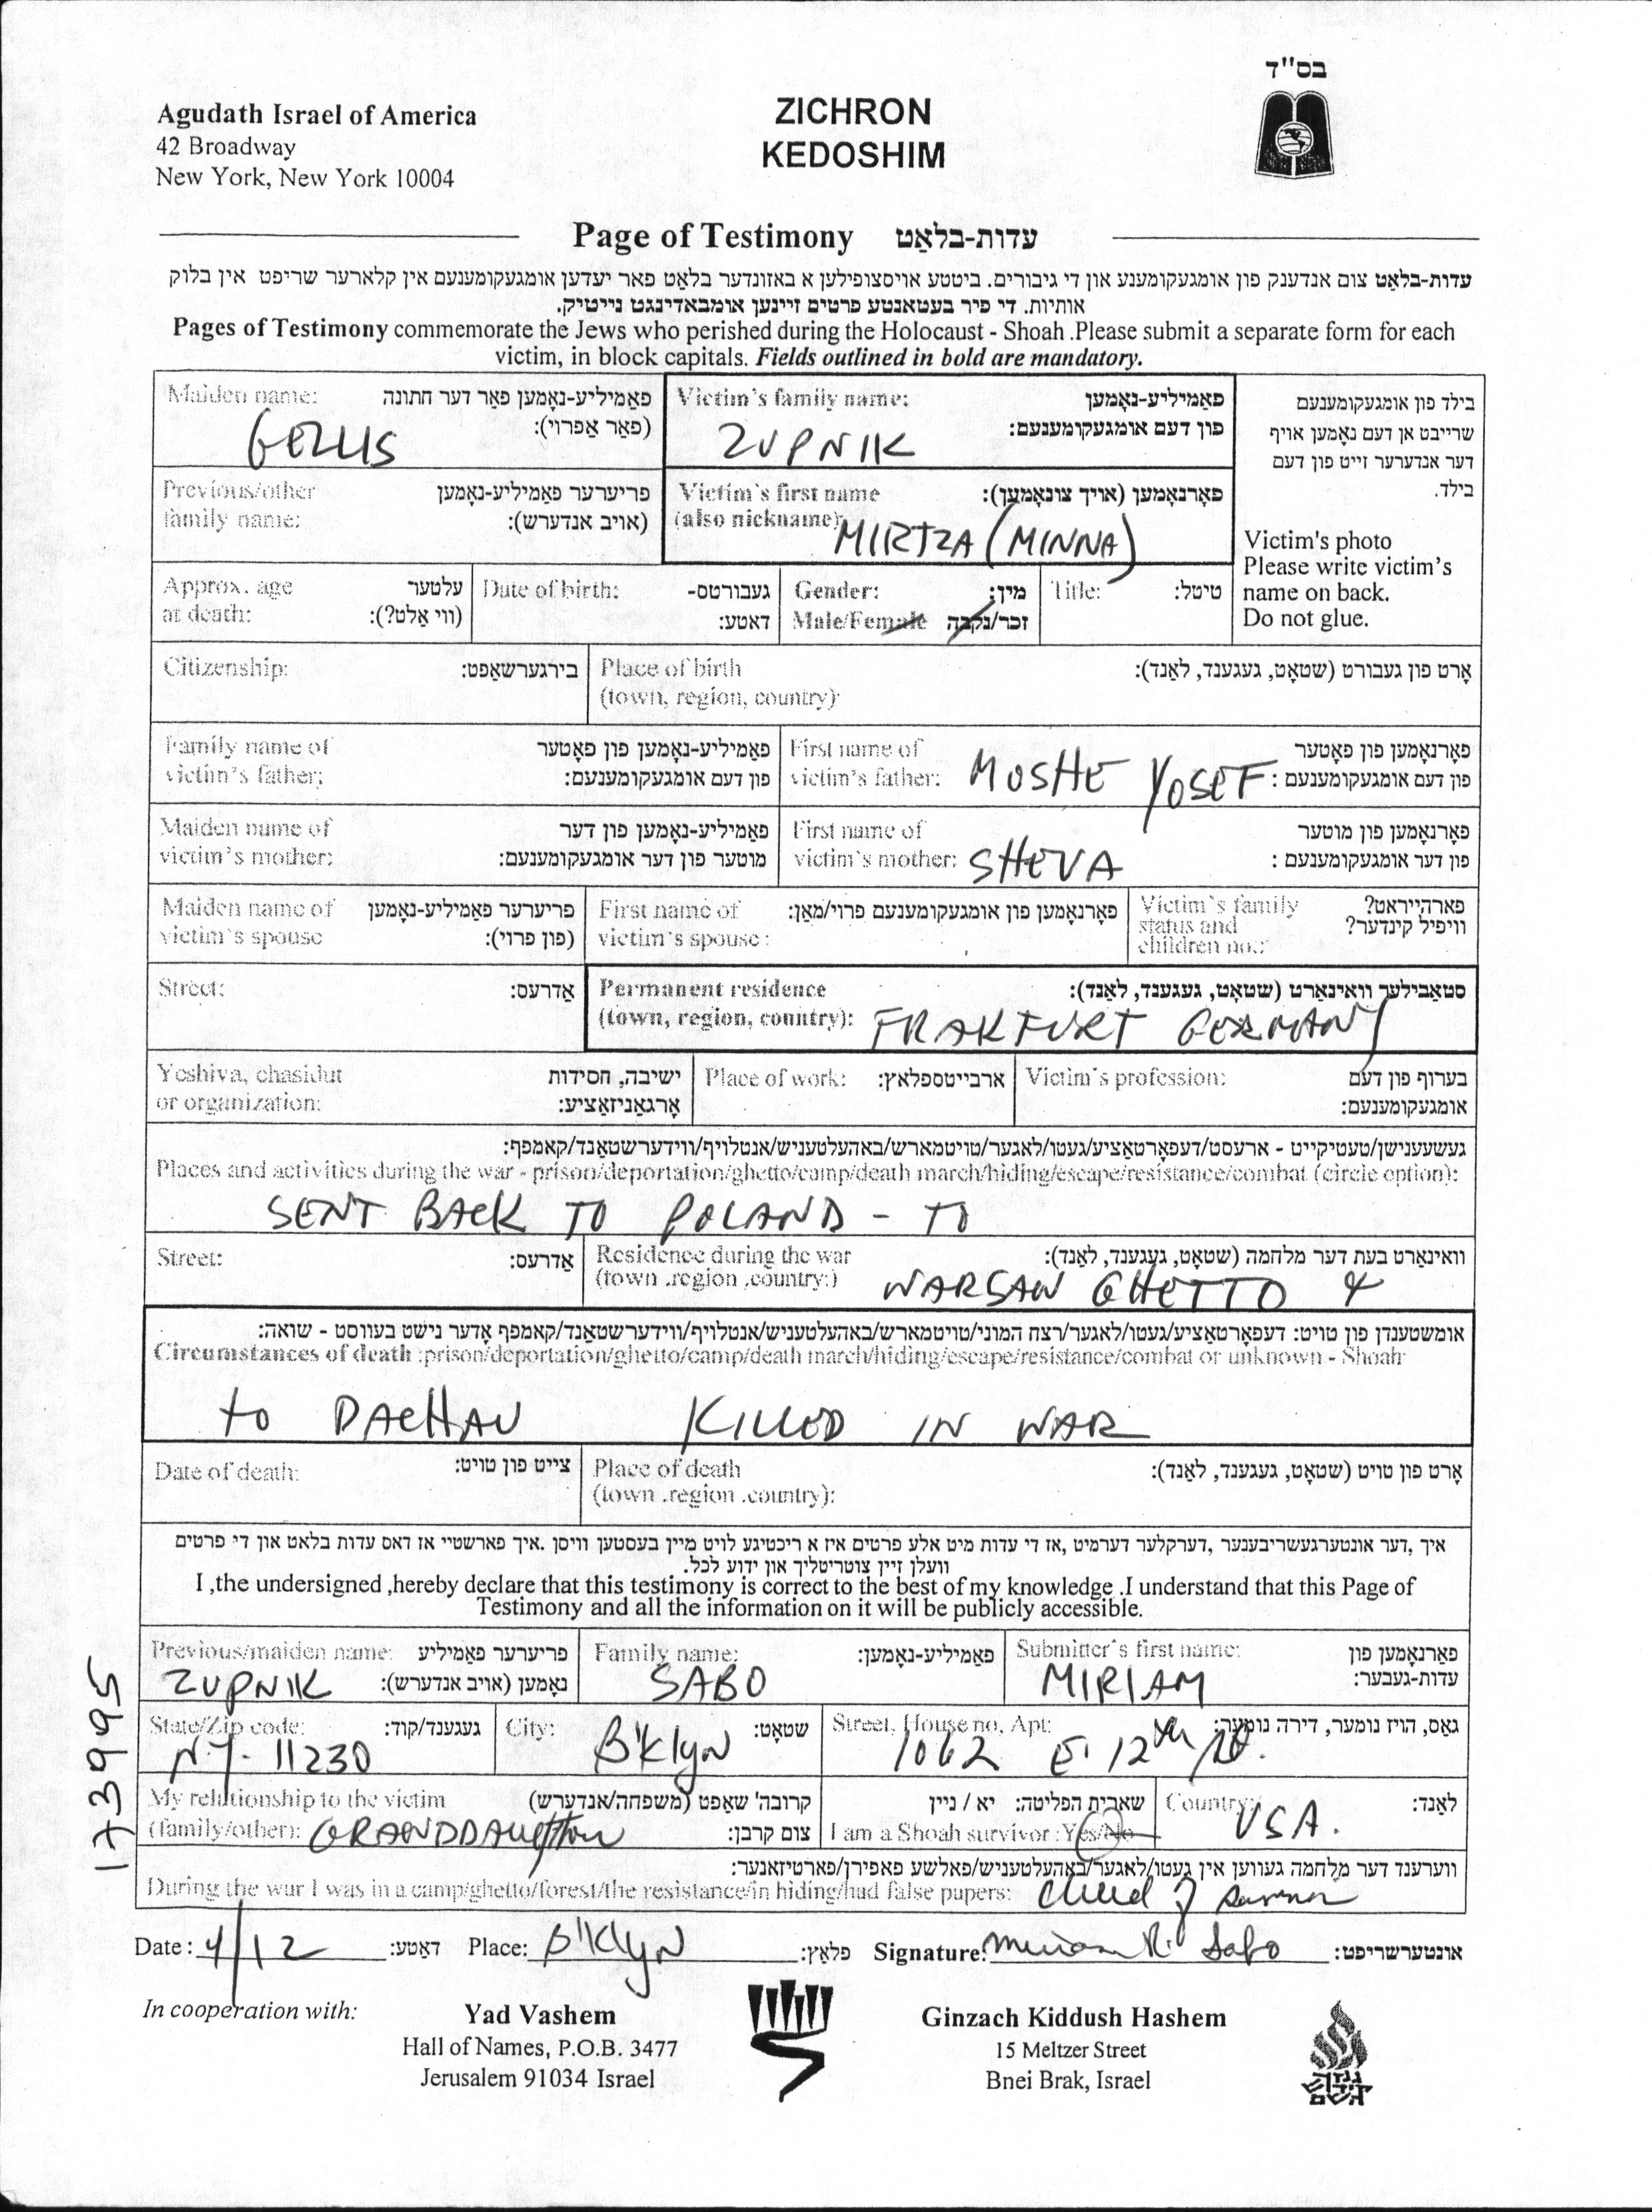 בס"ד
Agudath Israel of America
42 Broadway
New York, New York 10004
ZICHRON
KEDOSHIM
Page of Testimony עדות-בלאַט
עדות-בלאַט צום אנדענק פון אומגעקומענע און די גיבורים. ביטטע אויסצופילען א באזונדער בלאַט פאר יעדען אומגעקומענעם אין קלארער שריפט אין בלוק
אותיות. די פיר בעטאנטע פרטים זיינען אומבאדינגט נייטיק.
Pages of Testimony commemorate the Jews who perished during the Holocaust - Shoah .Please submit a separate form for each
victim, in block capitals. Fields outlined in bold are mandatory.
Maiden name: פאַמיליע-נאָמען פאַר דער חתונה
(פאַר אַפרוי):
GELLIS
Victim's family name: פאַמיליע-נאָמען
פון דעם אומגעקומענעם:
ZUPNIK
Previous/other פריערער פאַמיליע-נאָמען
family name: (אויב אנדערש):
Victim's first name פאָרנאָמען (אויך צונאָמען):
(also nickname):
MIRTZA (MINNA)
בילד פון אומגעקומענעם
שרייבט אן דעם נאָמען אויף
דער אנדערער זייט פון דעם
בילד.
Victim's photo
Please write victim's
name on back.
Do not glue.
Approx. age עלטער
at death: (ווי אַלט?):
Date of birth: געבורטס-
דאטע:
Gender: מין:
Male/Female זכר/נקבה
Title: טיטל:
Citizenship: בירגערשאַפט:
Place of birth אָרט פון געבורט (שטאָט, געגענד, לאַנד):
(town, region, country):
Family name of פאַמיליע-נאָמען פון פאָטער
victim's father: פון דעם אומגעקומענעם:
First name of פאָרנאָמען פון פאָטער
victim's father: MOSHE YOSEF פון דעם אומגעקומענעם :
Maiden name of פאַמיליע-נאָמען פון דער
victim's mother: מוטער פון דער אומגעקומענעם:
First name of פאָרנאָמען פון מוטער
victim's mother: SHEVA פון דער אומגעקומענעם :
Maiden name of פריערער פאַמיליע-נאָמען
victim's spouse (פון פרוי):
First name of פאָרנאָמען פון אומגעקומענעם פרוי/מאַן:
victim's spouse :
Victim's family פארהייראט?
status and וויפיל קינדער?
children no.:
Street: אַדרעס:
Permanent residence סטאַבילער וואוינאָרט (שטאָט, געגענד, לאַנד):
(town, region, country): FRAKFURT GERMANY
Yeshiva, chasidut ישיבה, חסידות
or organization: אָרגאַניזאַציע:
Place of work: ארבייטספלאץ:
Victim's profession: בערוף פון דעם
אומגעקומענעם:
געשעענישן/טעטיקייט - ארעסט/דעפּאָרטאַציע/געטו/לאגער/טויטמארש/באהעלטעניש/אנטלויף/ווידערשטאַנד/קאמפף:
Places and activities during the war - prison/deportation/ghetto/camp/death march/hiding/escape/resistance/combat (circle option):
SENT BACK TO POLAND - TO
Street: אַדרעס:
Residence during the war וואוינאָרט בעת דער מלחמה (שטאָט, געגענד, לאַנד):
(town .region .country:) WARSAW GHETTO &
אומשטענדן פון טויט: דעפּאָרטאַציע/געטו/לאגער/רצח המוני/טויטמארש/באהעלטעניש/אנטלויף/ווידערשטאַנד/קאמפף אָדער נישט בעוווסט - שואה:
Circumstances of death :prison/deportation/ghetto/camp/death march/hiding/escape/resistance/combat or unknown - Shoah
to DACHAU KILLED IN WAR
Date of death: צייט פון טויט:
Place of death אָרט פון טויט (שטאָט, געגענד, לאַנד):
(town .region .country):
איך ,דער אונטערגעשריבענער ,דערקלער דערמיט ,אז די עדות מיט אלע פרטים איז א ריכטיגע לויט מיין בעסטען וויסן .איך פארשטיי אז דאס עדות בלאט און די פרטים
וועלן זיין צוטריטליך און ידוע לכל.
I ,the undersigned ,hereby declare that this testimony is correct to the best of my knowledge .I understand that this Page of
Testimony and all the information on it will be publicly accessible.
Previous/maiden name: פריערער פאַמיליע
ZUPNIK נאָמען (אויב אנדערש):
Family name: פאַמיליע-נאָמען:
SABO
Submitter's first name: פאַרנאָמען פון
MIRIAM עדות-געבער:
State/Zip code: געגענד/קוד:
NY- 11230
City: שטאָט:
B'klyN
Street, House no, Apt: גאַס, הויז נומער, דירה נומער:
1062 E. 12th
My relationship to the victim קרובה' שאַפט (משפחה/אנדערש)
(family/other): GRANDDAughter צום קרבן:
שארית הפליטה: יא / ניין
I am a Shoah survivor :Yes/No
Country: לאַנד:
USA.
ווערענד דער מלחמה געווען אין געטו/לאגער/באהעלטעניש/פאלשע פאפירן/פארטיזאנער:
During the war I was in a camp/ghetto/forest/the resistance/in hiding/had false papers: child of
Date : 4/12 דאַטע: Place: B'KlyN פלאַץ: Signature: Miriam R. Sabo אונטערשריפט:
In cooperation with:
Yad Vashem
Hall of Names, P.O.B. 3477
Jerusalem 91034 Israel
Ginzach Kiddush Hashem
15 Meltzer Street
Bnei Brak, Israel
173995